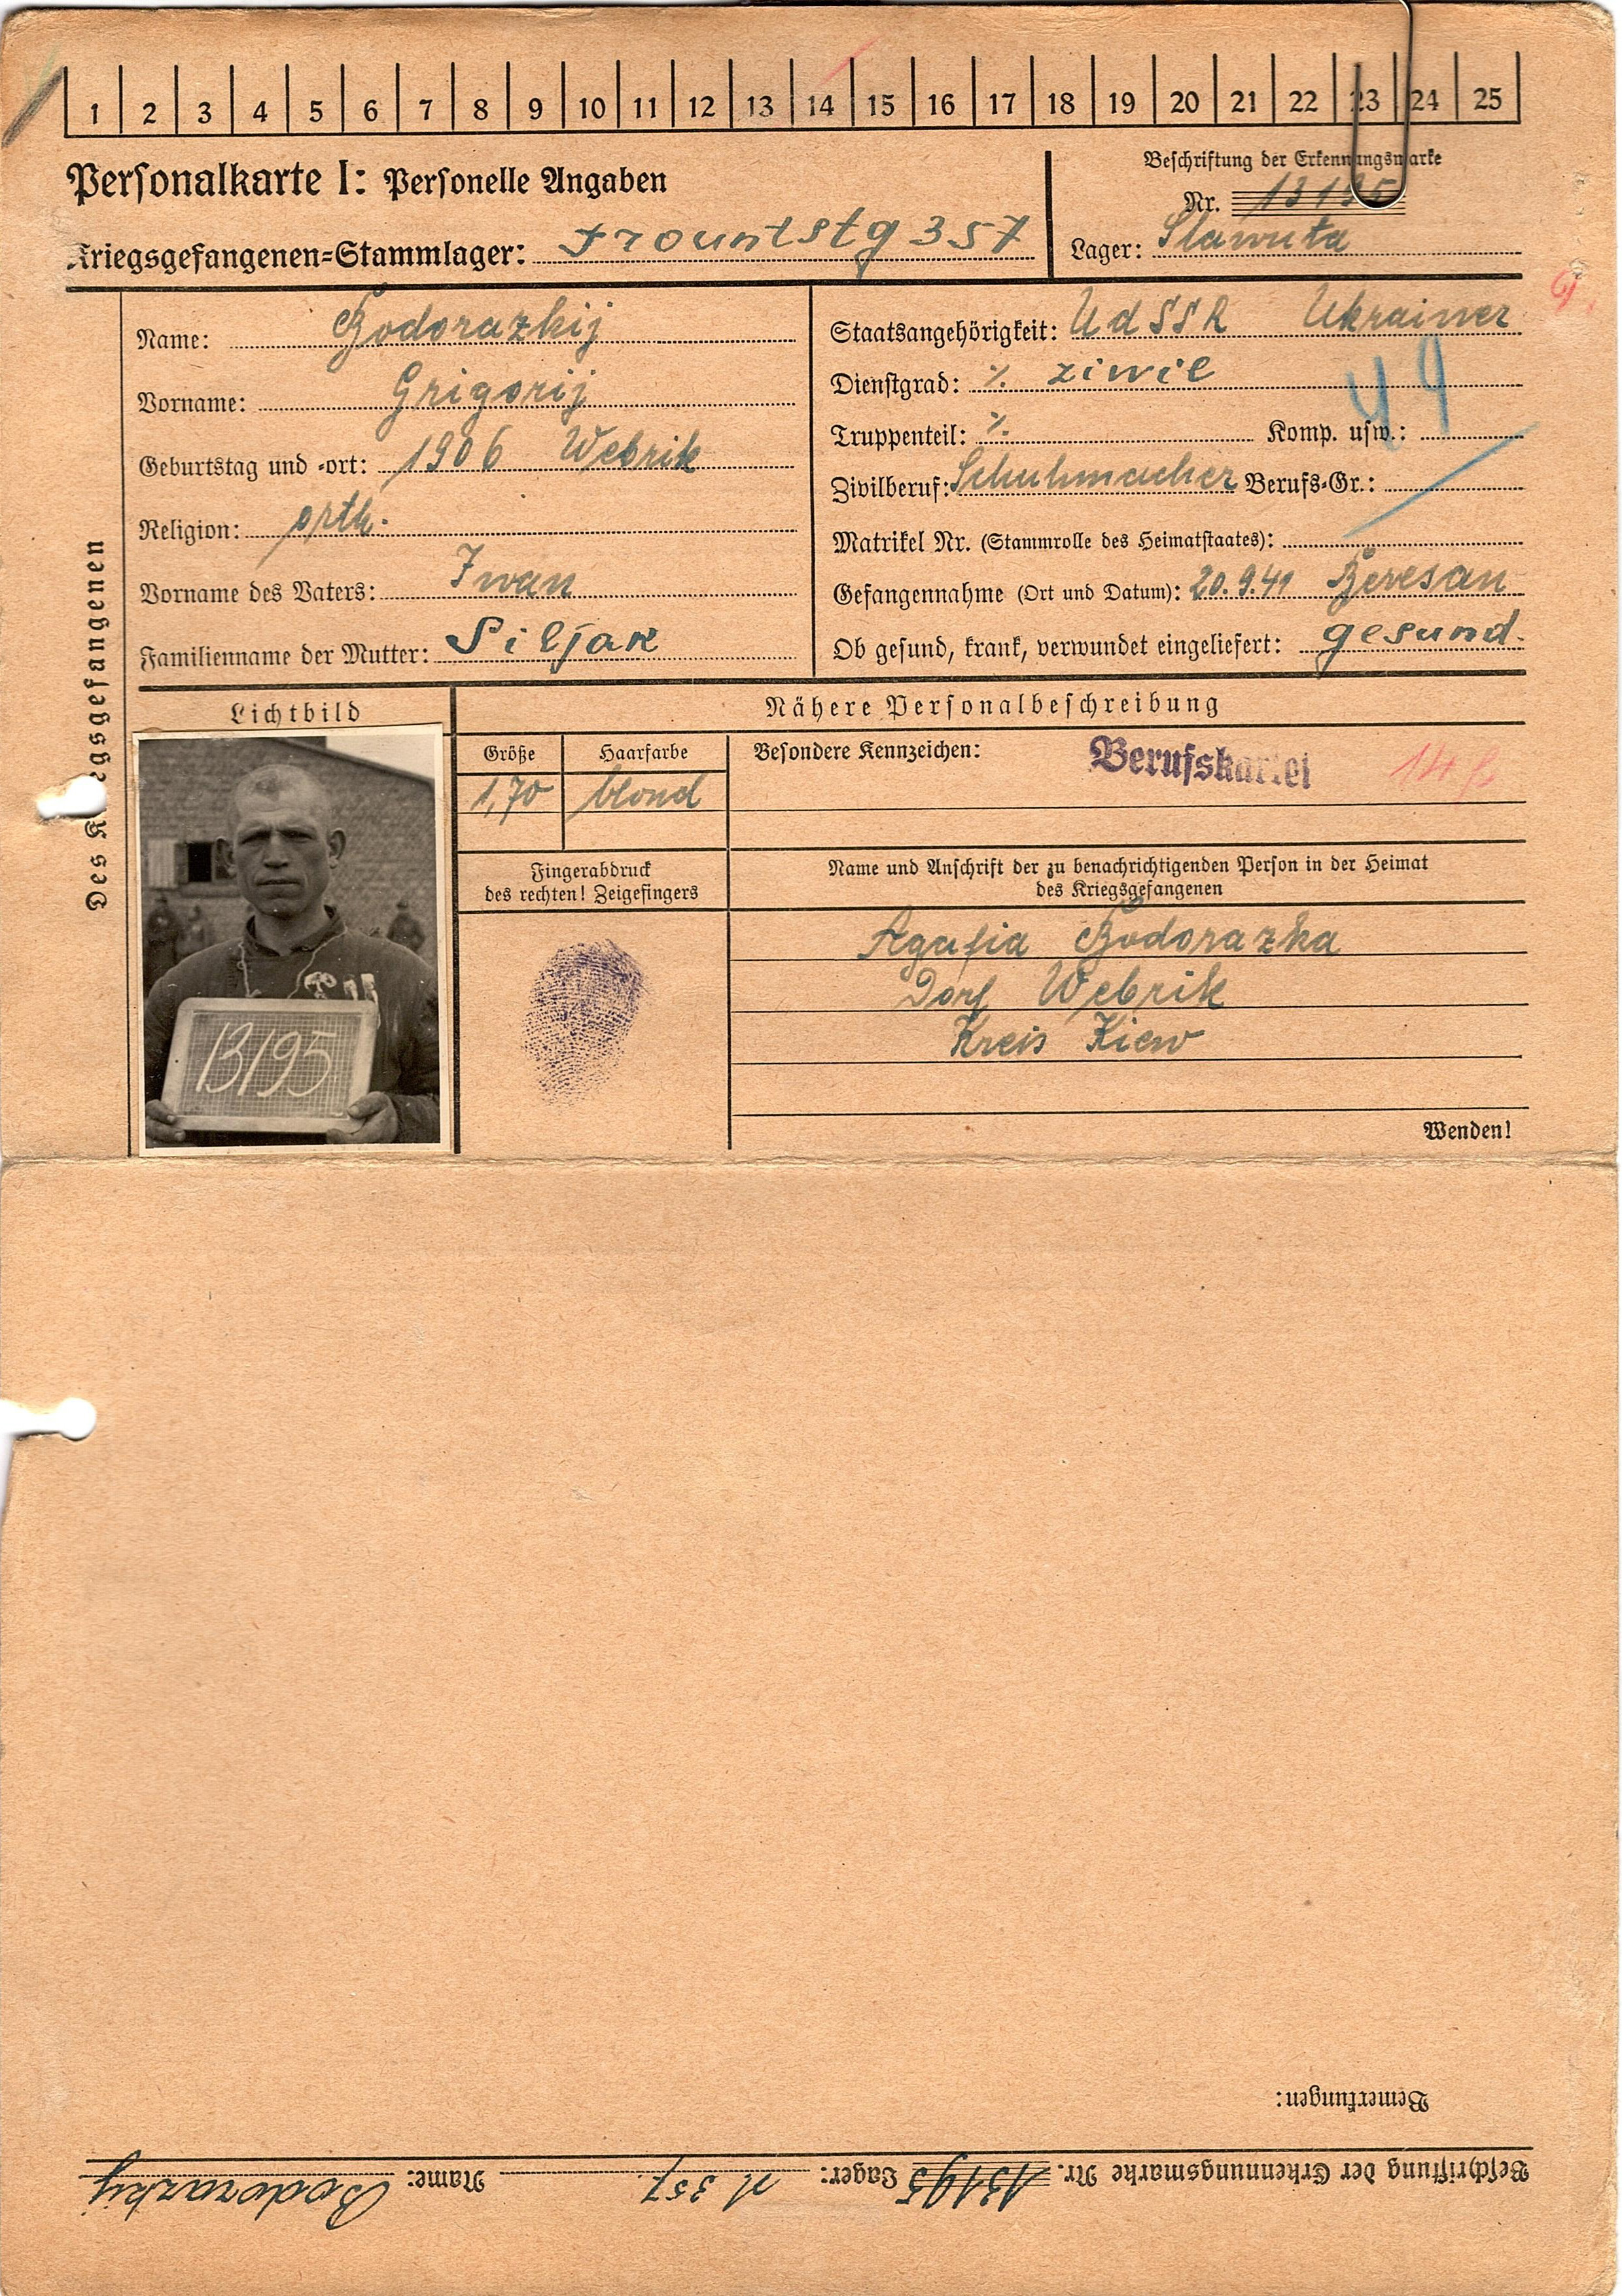 1 2 3 4 5 6 7 8 9 10 11 12 13 14 15 16 17 18 19 20 21 22 23 24 25
Personalkarte I: Personelle Angaben
Beschriftung der Erkennungsmarke
Nr. 13195
Kriegsgefangenen=Stammlager: Frountstg 357
Lager: Slawuta
Des Kriegsgefangenen
Name: Bodorazkij
Vorname: Grigorij
Geburtstag und -ort: 1906 Webrik
Religion: orth.
Vorname des Vaters: Iwan
Familienname der Mutter: Siljak
Staatsangehörigkeit: UdSSR Ukrainer
Dienstgrad: ·/. ziwil
Truppenteil: ·/. Komp. usw.:
44
Zivilberuf: Schuhmacher Berufs=Gr.:
Matrikel Nr. (Stammrolle des Heimatstaates):
Gefangennahme (Ort und Datum): 20.9.41 Beresan
Ob gesund, krank, verwundet eingeliefert: gesund.
Lichtbild
13195
Nähere Personalbeschreibung
Größe
1,70
Haarfarbe
blond
Besondere Kennzeichen:
Berufskartei
Fingerabdruck
des rechten! Zeigefingers
Name und Anschrift der zu benachrichtigenden Person in der Heimat
des Kriegsgefangenen
Agafia Bodorazka
Dorf Webrik
Kreis Kiew
Wenden!
Bemerkungen:
Beschriftung der Erkennungsmarke Nr. 13195 Lager: M 357. Name: Bodorazkij